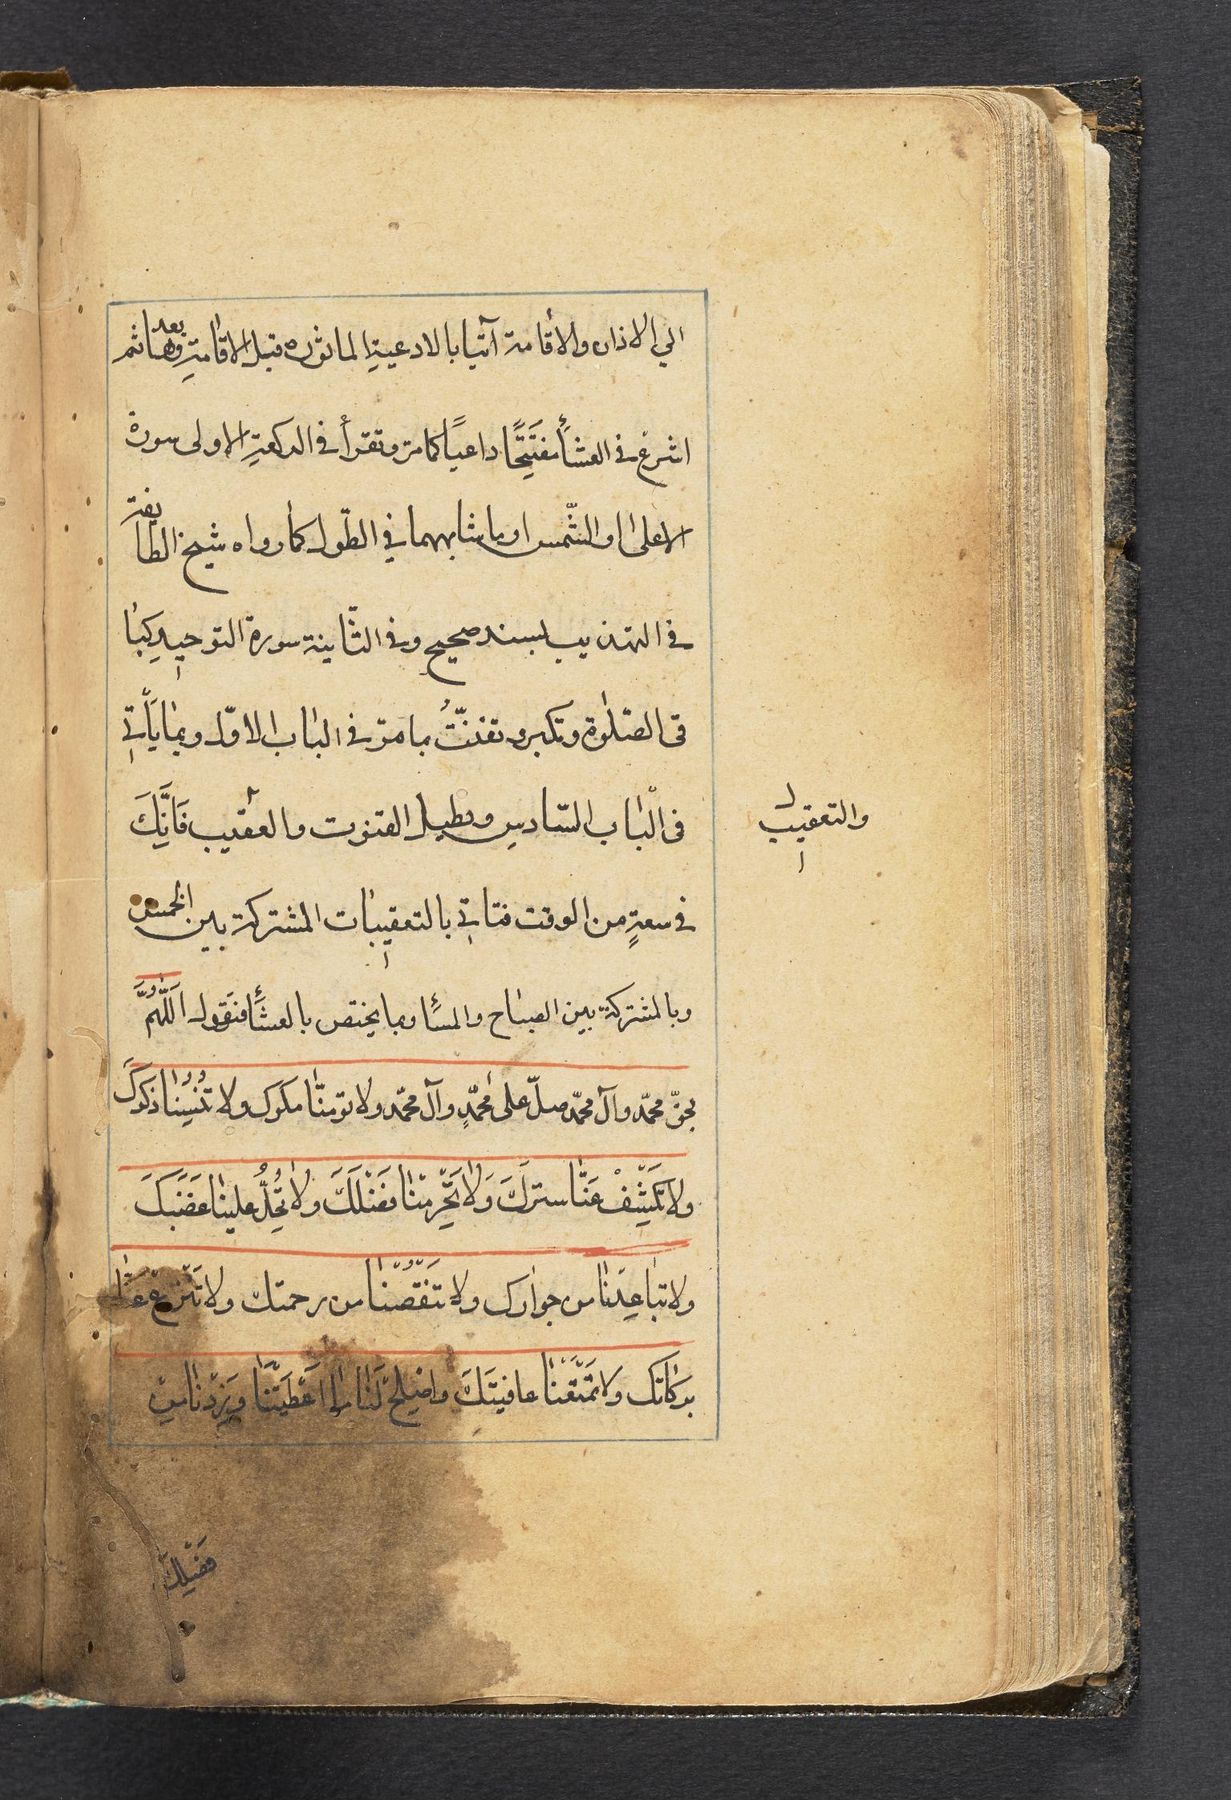 الي الاذان والأقامة آتيا بالادعيةِ الماثوره قبل الاقامةِ وبعدها ثم
اشرع في العشأِ مفتتِحًا داعيًا كما مر وتقرأ في الركعةِ الاولى سورة
الاعلى او الشّمس او ما شابههما في الطّول كما رواه شيخ الطايفة
في التهذيب بسند صحيح وفي الثّانية سورة التوحيدِ كبا
قى الصّلوٰة وتكبر وتقنتُ بما مرّ في الباب الاوّل وبما يأتي
فى الباب السّادس وتطيل القنوت والعقيب فَانَّكَ
والتعقيب
في سعةٍ من الوقت فتاتي بالتعقيبات المشتركة بين الخمس
وبالمشتركة بين الصباح والمسأِ وبما يختص بالعشأِ فتقول اَللّٰهُمَّ
بحقّ محمّد وآل محمّد صلّ على محمّدٍ وآل محمّد ولا تؤمنّا مكرك ولا تُنْسِنا ذكركَ
ولا تَكْشِفْ عَنّا سترَكَ وَلا تَحْرِمْنا فَضْلَكَ ولا تُحِلَّ علينا غَضَبَكَ
ولا تباعِدْنا من جوارك ولا تَنْقُصْنا من رحمتك ولا تَنْزِعْ عَنّا
بركاتك ولا تَمْنَعْنا عافيتَكَ واصْلِحْ لَنا ما اَعْطَيْتَنا وَزِدْنا مِنْ
فَضْلِكَ